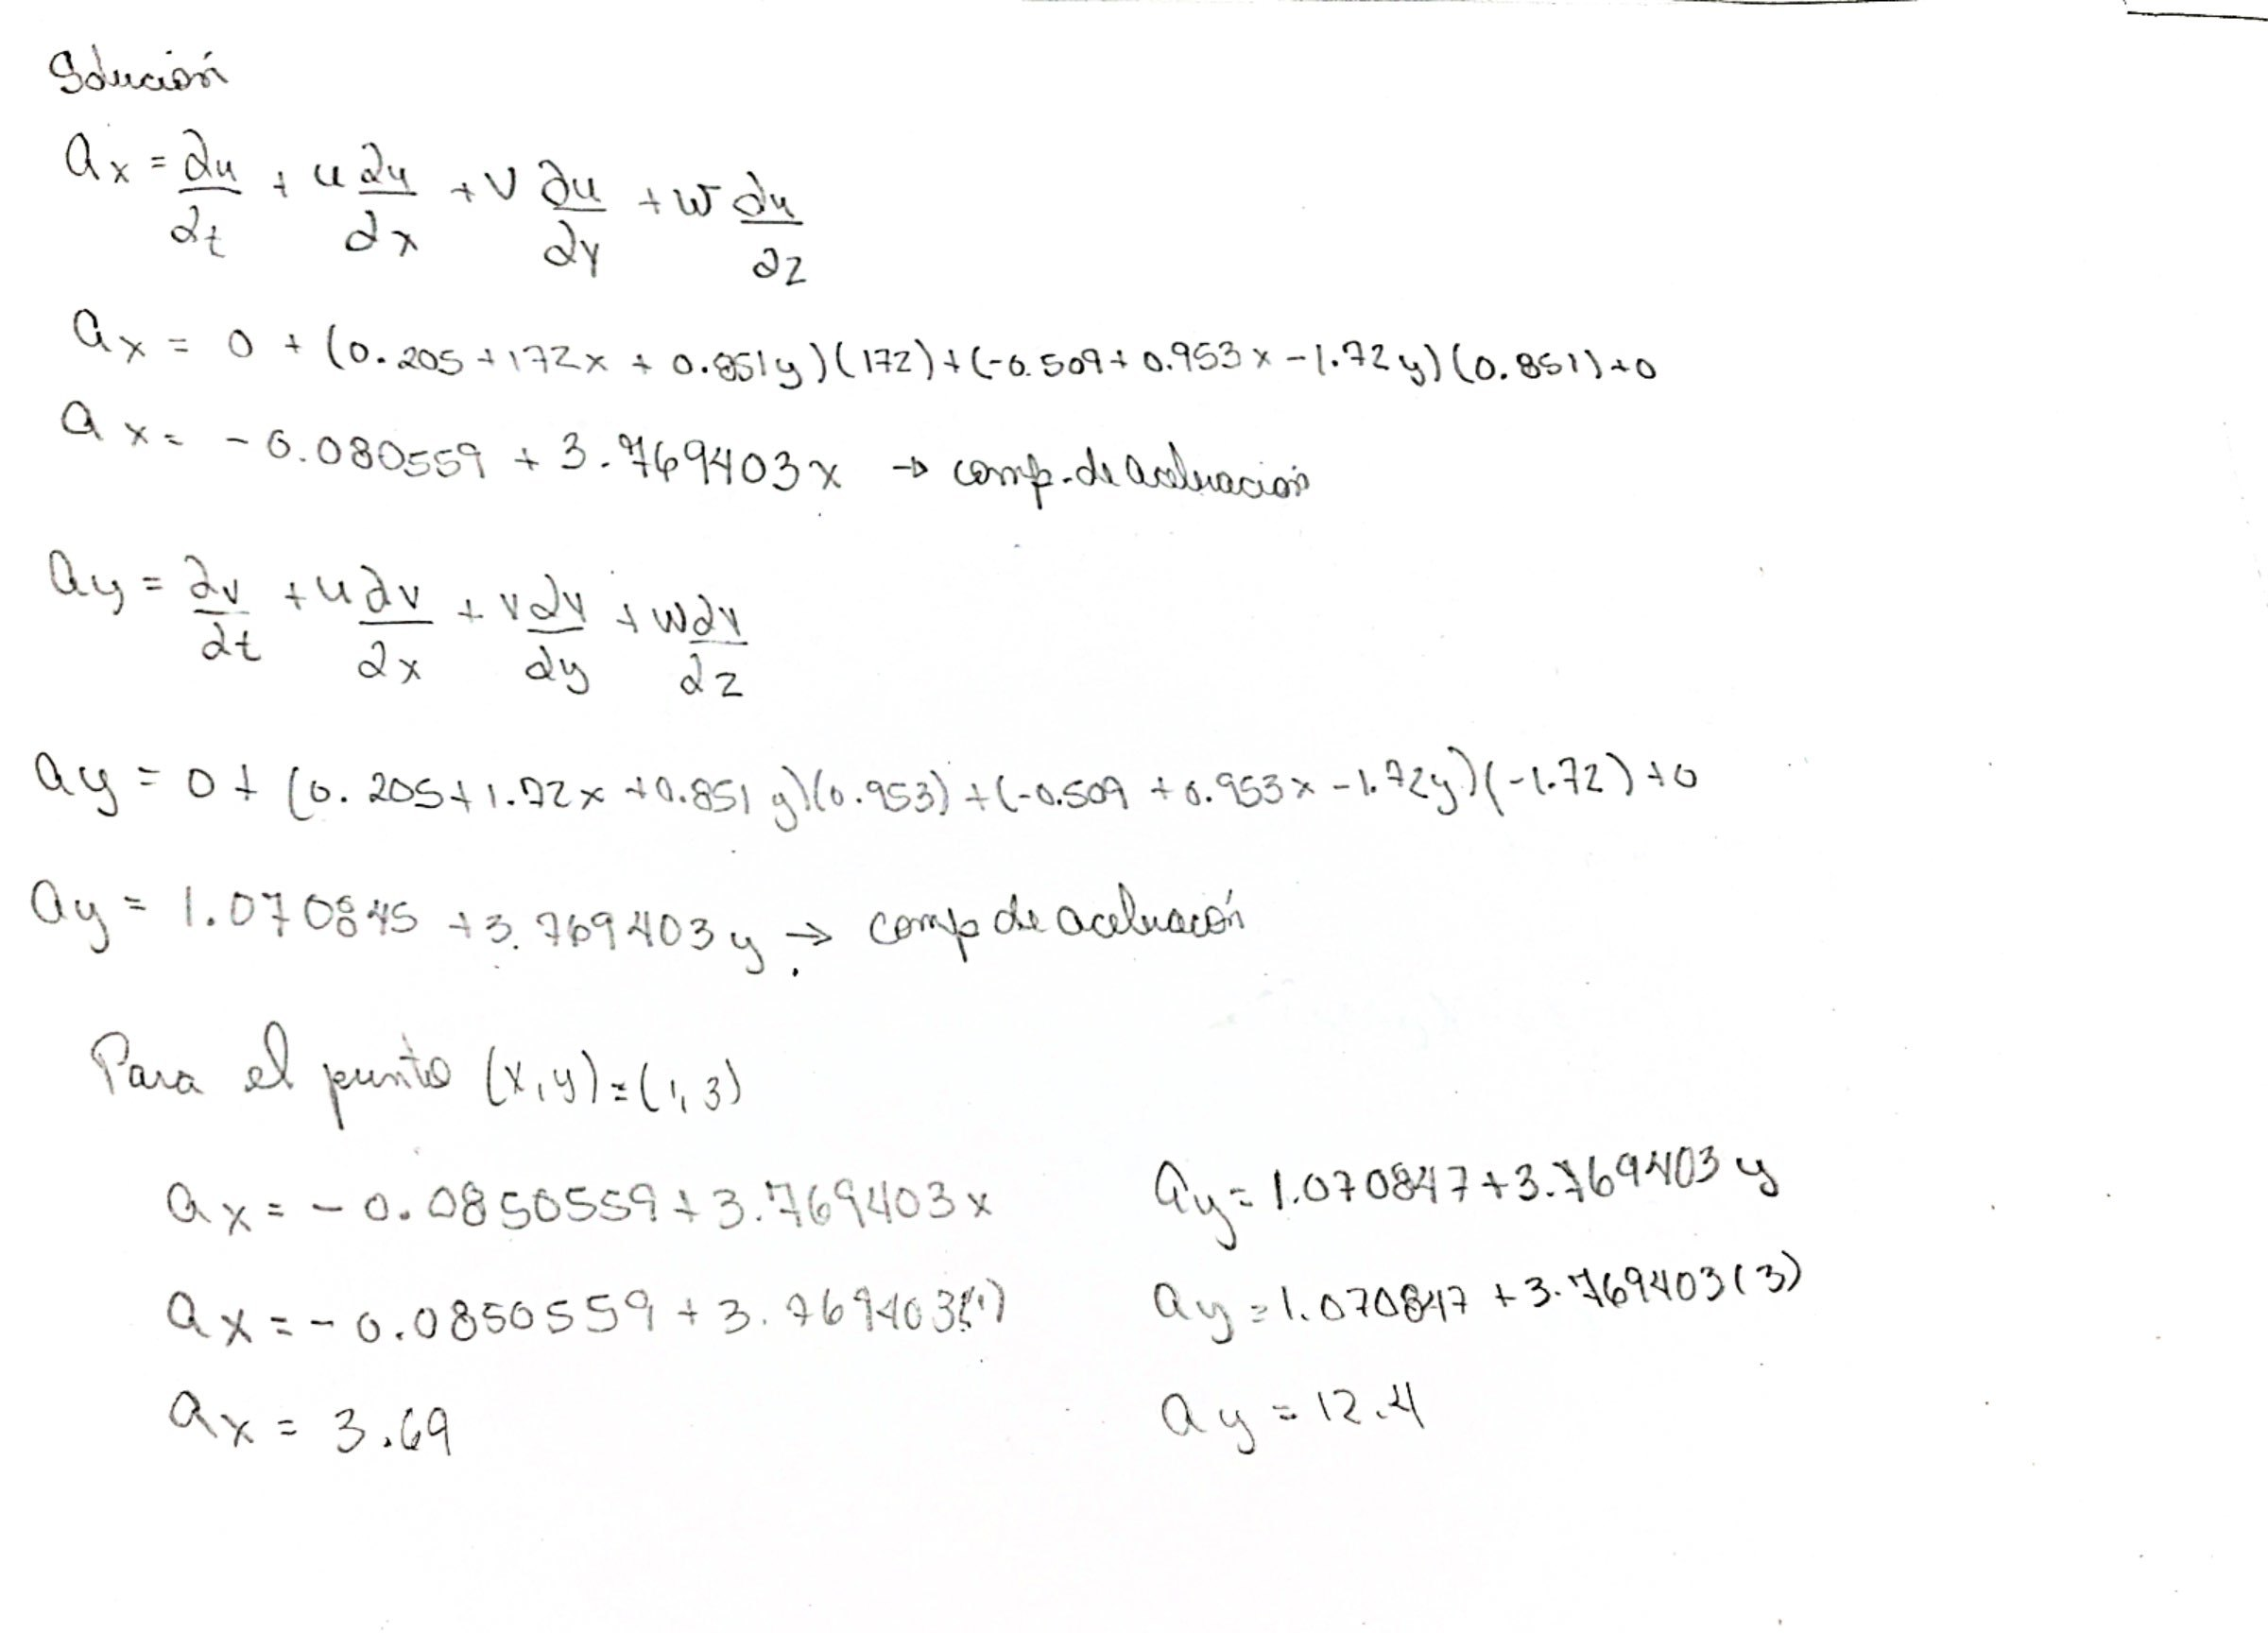 Solución
ax = ∂u/∂t + u ∂u/∂x + v ∂u/∂y + w ∂u/∂z
ax = 0 + (0.205 + 172x + 0.851y)(172) + (-0.509 + 0.953x - 1.72y)(0.851) + 0
ax = -0.080559 + 3.769403x → comp. de aceleración
ay = ∂v/∂t + u ∂v/∂x + v ∂v/∂y + w ∂v/∂z
ay = 0 + (0.205 + 1.72x + 0.851y)(0.953) + (-0.509 + 0.953x - 1.72y)(-1.72) + 0
ay = 1.070845 + 3.769403y → comp de aceleración
Para el punto (x,y) = (1,3)
ax = -0.0850559 + 3.769403x
ay = 1.070847 + 3.769403y
ax = -0.0850559 + 3.769403(1)
ay = 1.070847 + 3.769403(3)
ax = 3.69
ay = 12.4